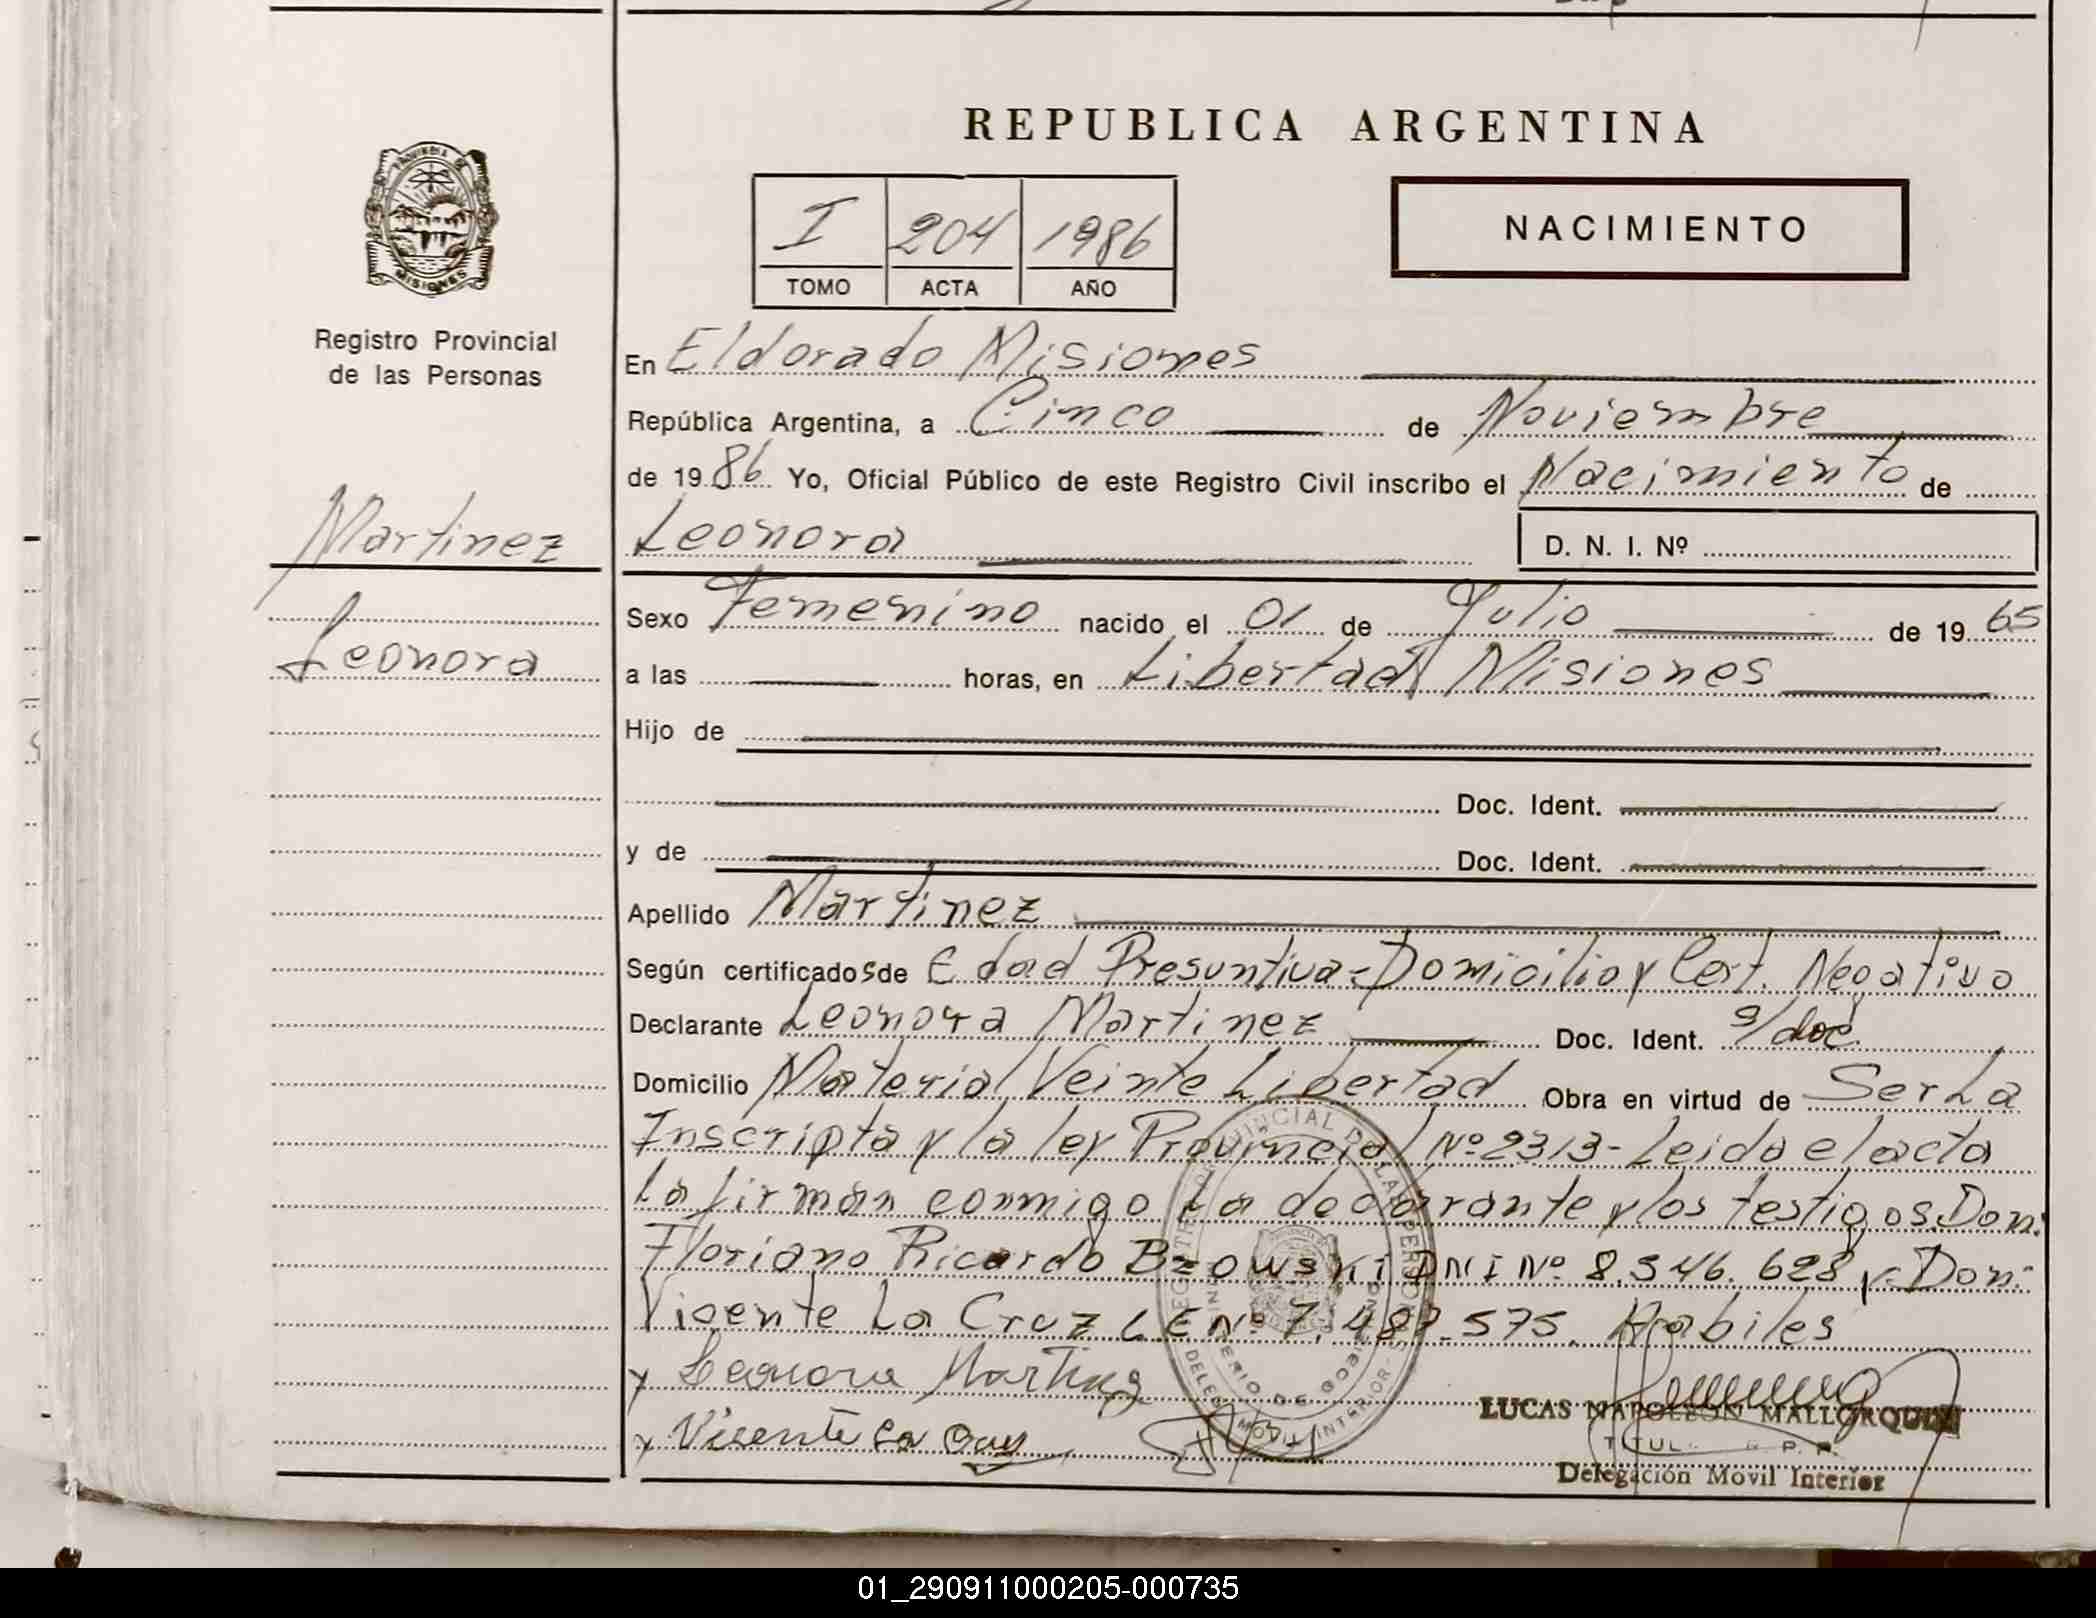 REPUBLICA ARGENTINA
PROVINCIA DE
MISIONES
Registro Provincial
de las Personas
I 204 1986
TOMO ACTA AÑO
NACIMIENTO
En Eldorado Misiones
República Argentina, a Cinco de Noviembre
de 1986 Yo, Oficial Público de este Registro Civil inscribo el Nacimiento de
Martinez
Leonora
Leonora
D. N. I. Nº
Sexo Femenino nacido el 01 de Julio de 1965
a las horas, en Libertad Misiones
Hijo de
Doc. Ident.
y de Doc. Ident.
Apellido Martinez
Según certificados de Edad Presuntiva - Domicilio y Cert. Negativo
Declarante Leonora Martinez Doc. Ident. s/doc
Domicilio Materia Veinte Libertad Obra en virtud de Ser La
Inscripta y la ley Provincial Nº 2313 - Leida el acta
La firman conmigo La declarante y los testigos Don:
Floriano Ricardo Bzowski DNI Nº 8.546.628 y Don:
Vicente La Cruz L E Nº 7.487.575. Habiles
y Leonora Martinez
y Vicente La Cruz
LUCAS NAPOLEON MALLORQUIN
Delegación Movil Interior
01_290911000205-000735